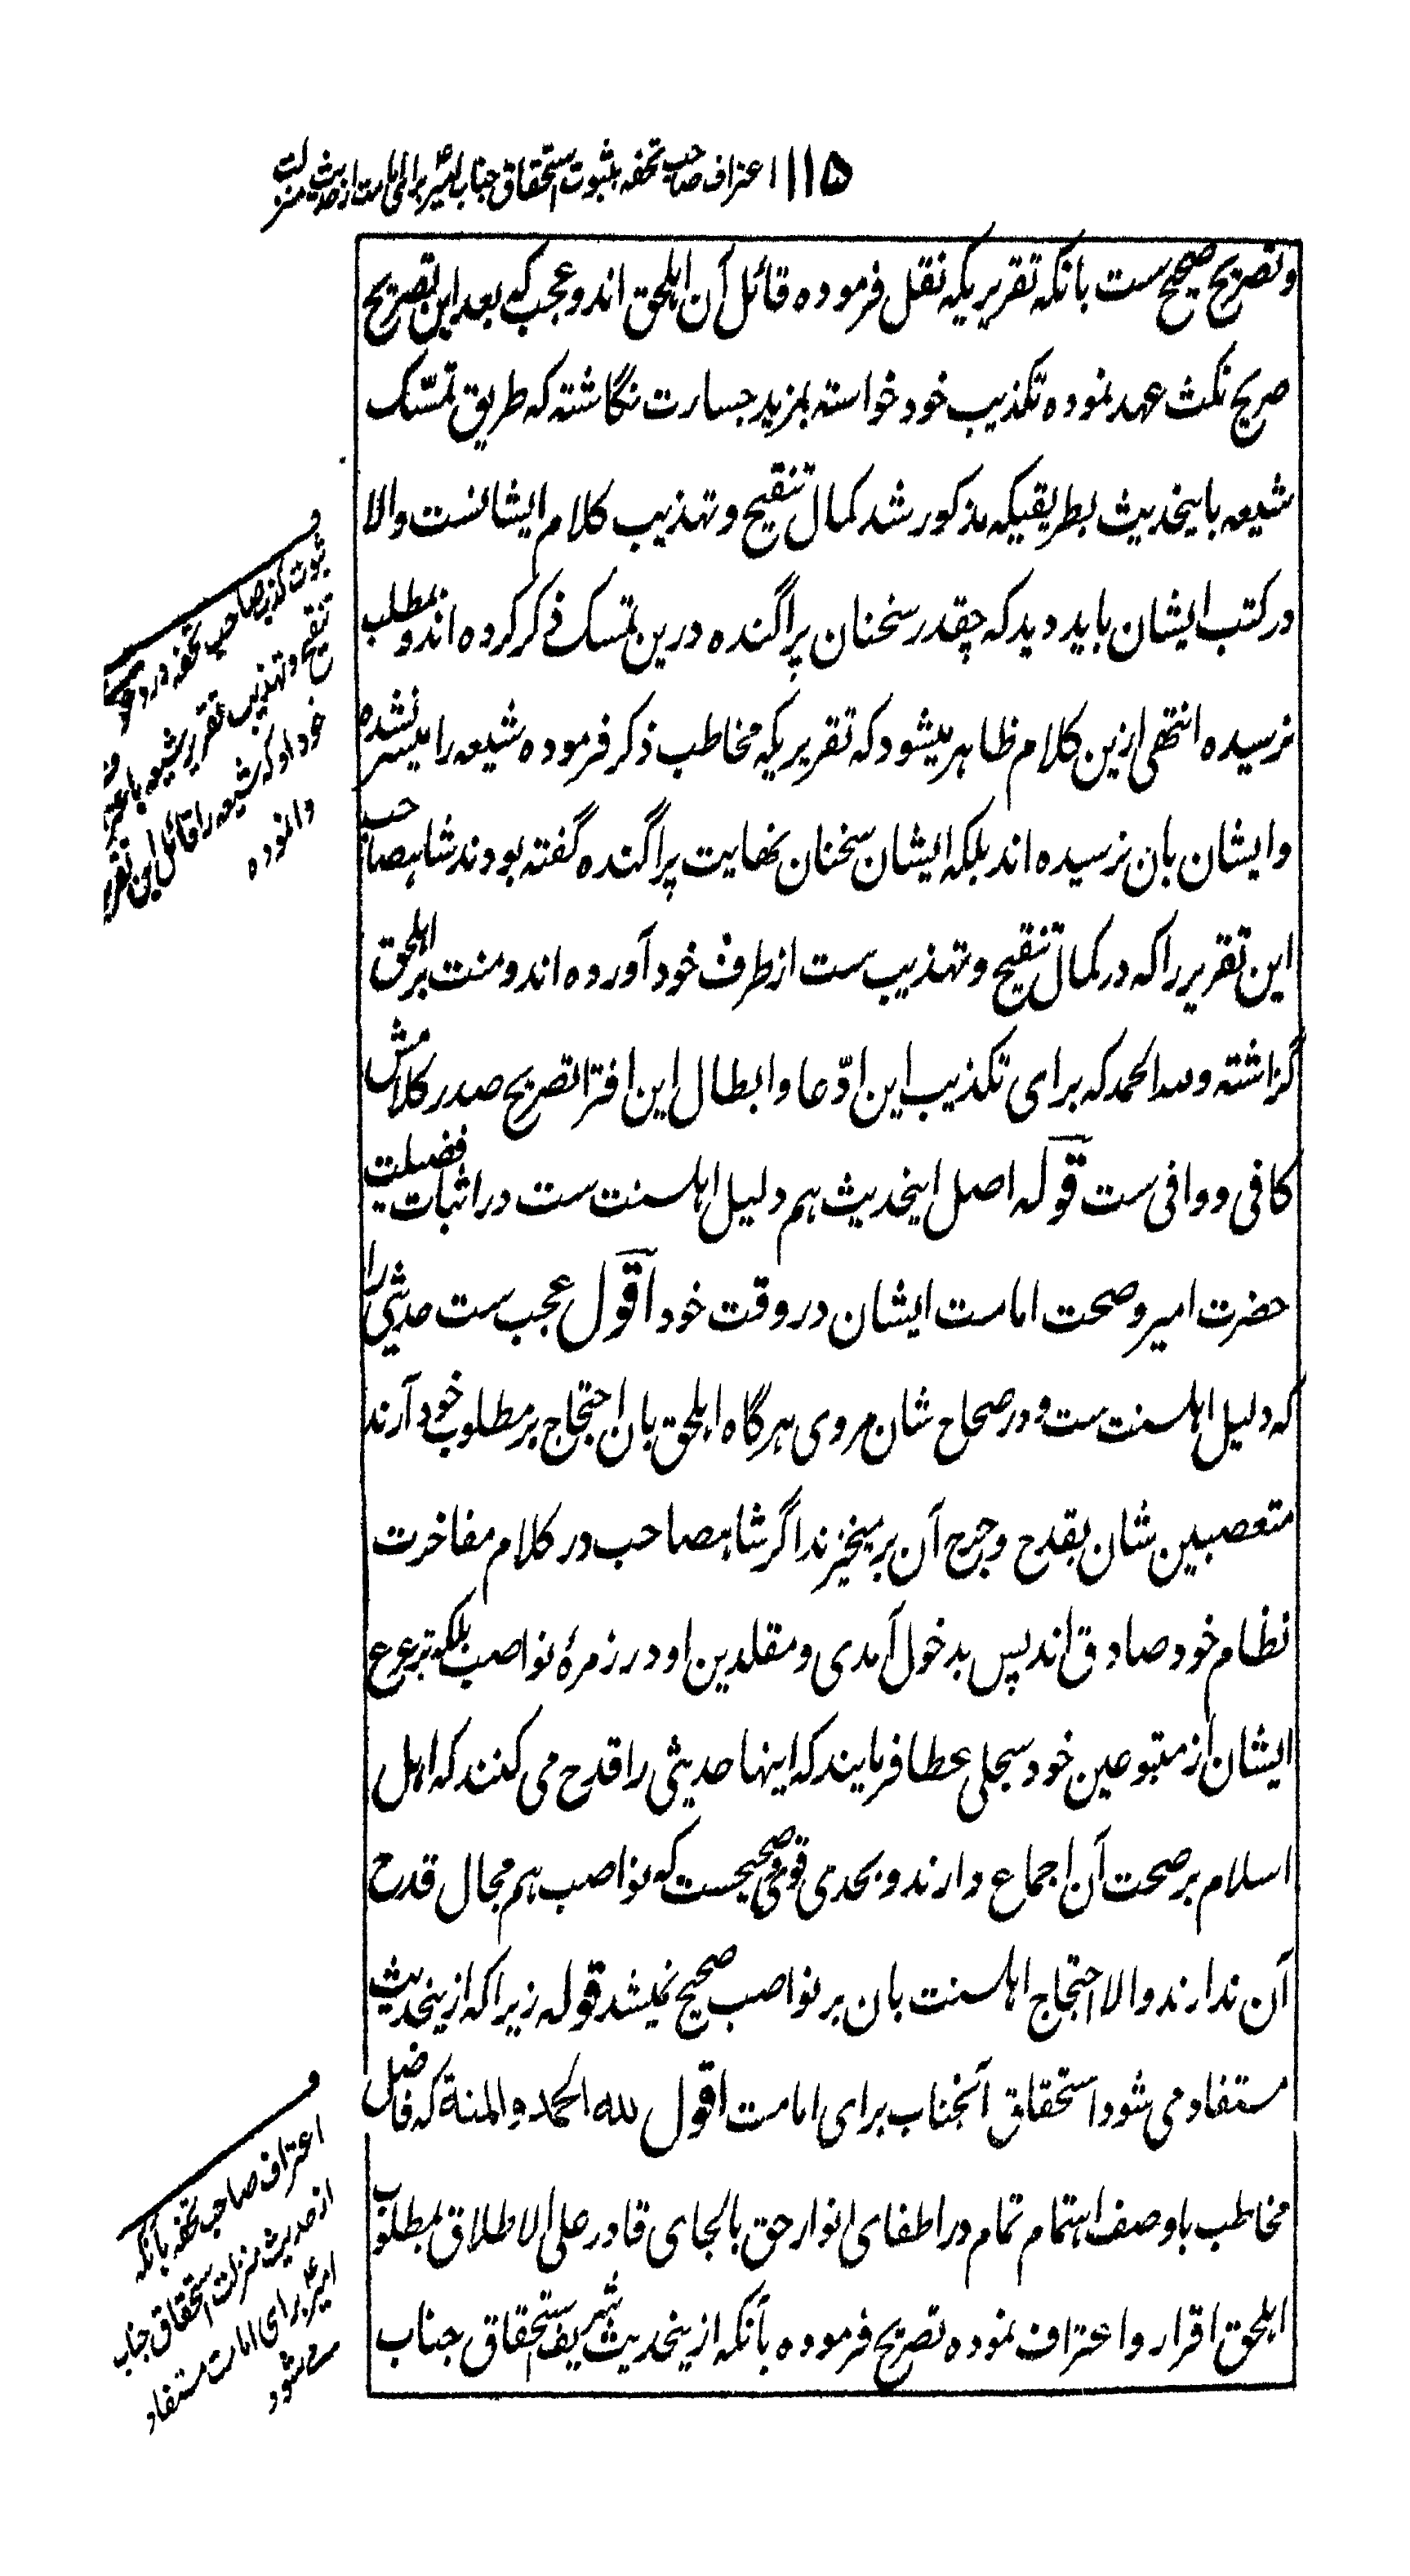 ۱۱۵ اعتراف صاحب تحفه بثبوت استحقاق جناب امیرؑ برای امامت از حدیث منزلت
و تصریح صحیح ست بانکه تقریریکه نقل فرموده قائل آن اهلحق اند و عجب که بعد این تصریح
صریح نکث عهد نموده تکذیب خود خواسته بمزید جسارت نگاشته که طریق تمسّک
شیعه باینحدیث بطریقیکه مذکور شد کمال تنقیح و تهذیب کلام ایشانست والا
در کتب ایشان باید دید که چقدر سخنان پراگنده درین تمسک ذکر کرده اند و بمطلب
نرسیده انتهی ازین کلام ظاهر میشود که تقریریکه مخاطب ذکر فرموده شیعه را میسر نشده
و ایشان بان نرسیده اند بلکه ایشان سخنان نهایت پراگنده گفته بودند شاهصاحب
این تقریر را که در کمال تنقیح و تهذیب ست از طرف خود آورده اند و منت بر اهلحق
گزاشته و لله الحمد که برای تکذیب این ادّعا و ابطال این افترا تصریح صدر کلامش
کافی و وافی ست قوله اصل اینحدیث هم دلیل اهلسنت ست در اثبات فضیلت
حضرت امیر و صحت امامت ایشان در وقت خود اقول عجب ست حدیثی را
که دلیل اهلسنت ست و در صحاح شان مروی هرگاه اهلحق بان احتجاج بر مطلوب خود آرند
متعصبین شان بقدح و جرح آن برمیخیزند اگر شاهصاحب در کلام مفاخرت
نظام خود صادق اند پس بدخول آمدی و مقلدین او در زمرهٔ نواصب بلکه تبرع
ایشان از متبوعین خود سجلی عطا فرمایند که اینها حدیثی را قدح می کنند که اهل
اسلام بر صحت آن اجماع دارند و بحدی قوی و صحیحست که نواصب هم مجال قدح
آن ندارند والا احتجاج اهلسنت بان بر نواصب صحیح نمیشد قوله زیرا که ازینحدیث
مستفاد می شود استحقاق آنجناب برای امامت اقول لله الحمد والمنة که فاضل
مخاطب باوصف اهتمام تمام در اطفای انوار حق بالجای قادر علی الاطلاق بمطلوب
اهلحق اقرار و اعتراف نموده تصریح فرموده بآنکه ازینحدیث شریف استحقاق جناب
ف
ثبوت کذب صاحب تحفه در دعوی
تنقیح و تهذیب تقریر شیعه
خود او که شیعه را قائل این تقریر
وانموده
ف
اعتراف صاحب تحفه بانکه
از حدیث منزلت استحقاق جناب
امیرؑ برای امامت مستفاد
می شود